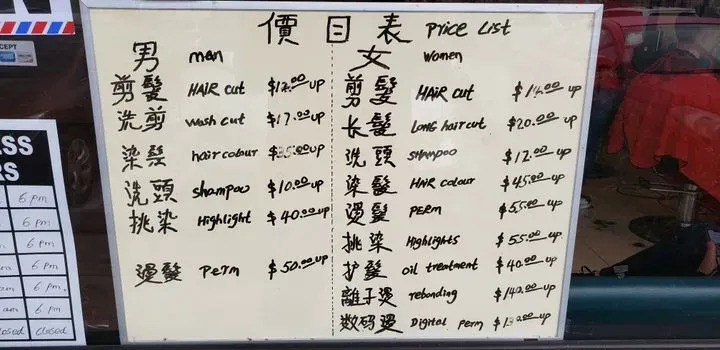 價目表 Price List
男 men
剪髮 HAIR cut $12.00 up
洗剪 wash cut $17.00 up
染髮 hair colour $35.00 up
洗頭 shampoo $10.00 up
挑染 Highlight $40.00 up
燙髮 Perm $50.00 up
女 women
剪髮 HAIR cut up
长髮 LONG hair cut $20.00 up
洗頭 SHAMPOO $12.00 up
染髮 HAIR colour $45.00 up
燙髮 PERM $55.00 up
挑染 Highlights $55.00 up
护髮 oil treatment $40.00 up
離子燙 rebonding $140.00 up
数码燙 Digital perm up
CEPT
SS
RS
6 pm
6 pm
6 pm
6 pm
6 pm.
6 pm
closed closed